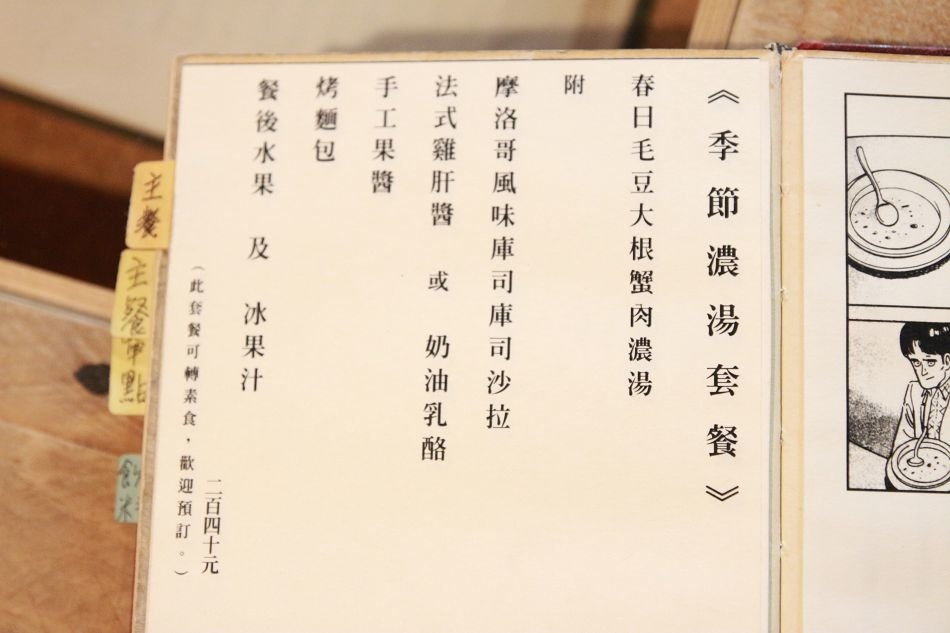 《季節濃湯套餐》
春日毛豆大根蟹肉濃湯
附
摩洛哥風味庫司庫司沙拉
法式雞肝醬 或 奶油乳酪
手工果醬
烤麵包
餐後水果 及 冰果汁
二百四十元
(此套餐可轉素食,歡迎預訂。)
主餐
主餐單點